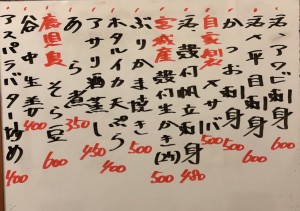 活〆アワビ刺身 600
活〆平目刺身 600
かつお刺身 500
自家製〆サバ 500
活〆殻付帆立刺身 480
宮城産殻付生かき(2ヶ) 500
ぶりかま焼き 500
ホタルイカ天ぷら 400
アサリ酒蒸し 450
あら煮 350
鹿児島そら豆 600
谷中生姜 400
アスパラバター炒め 400